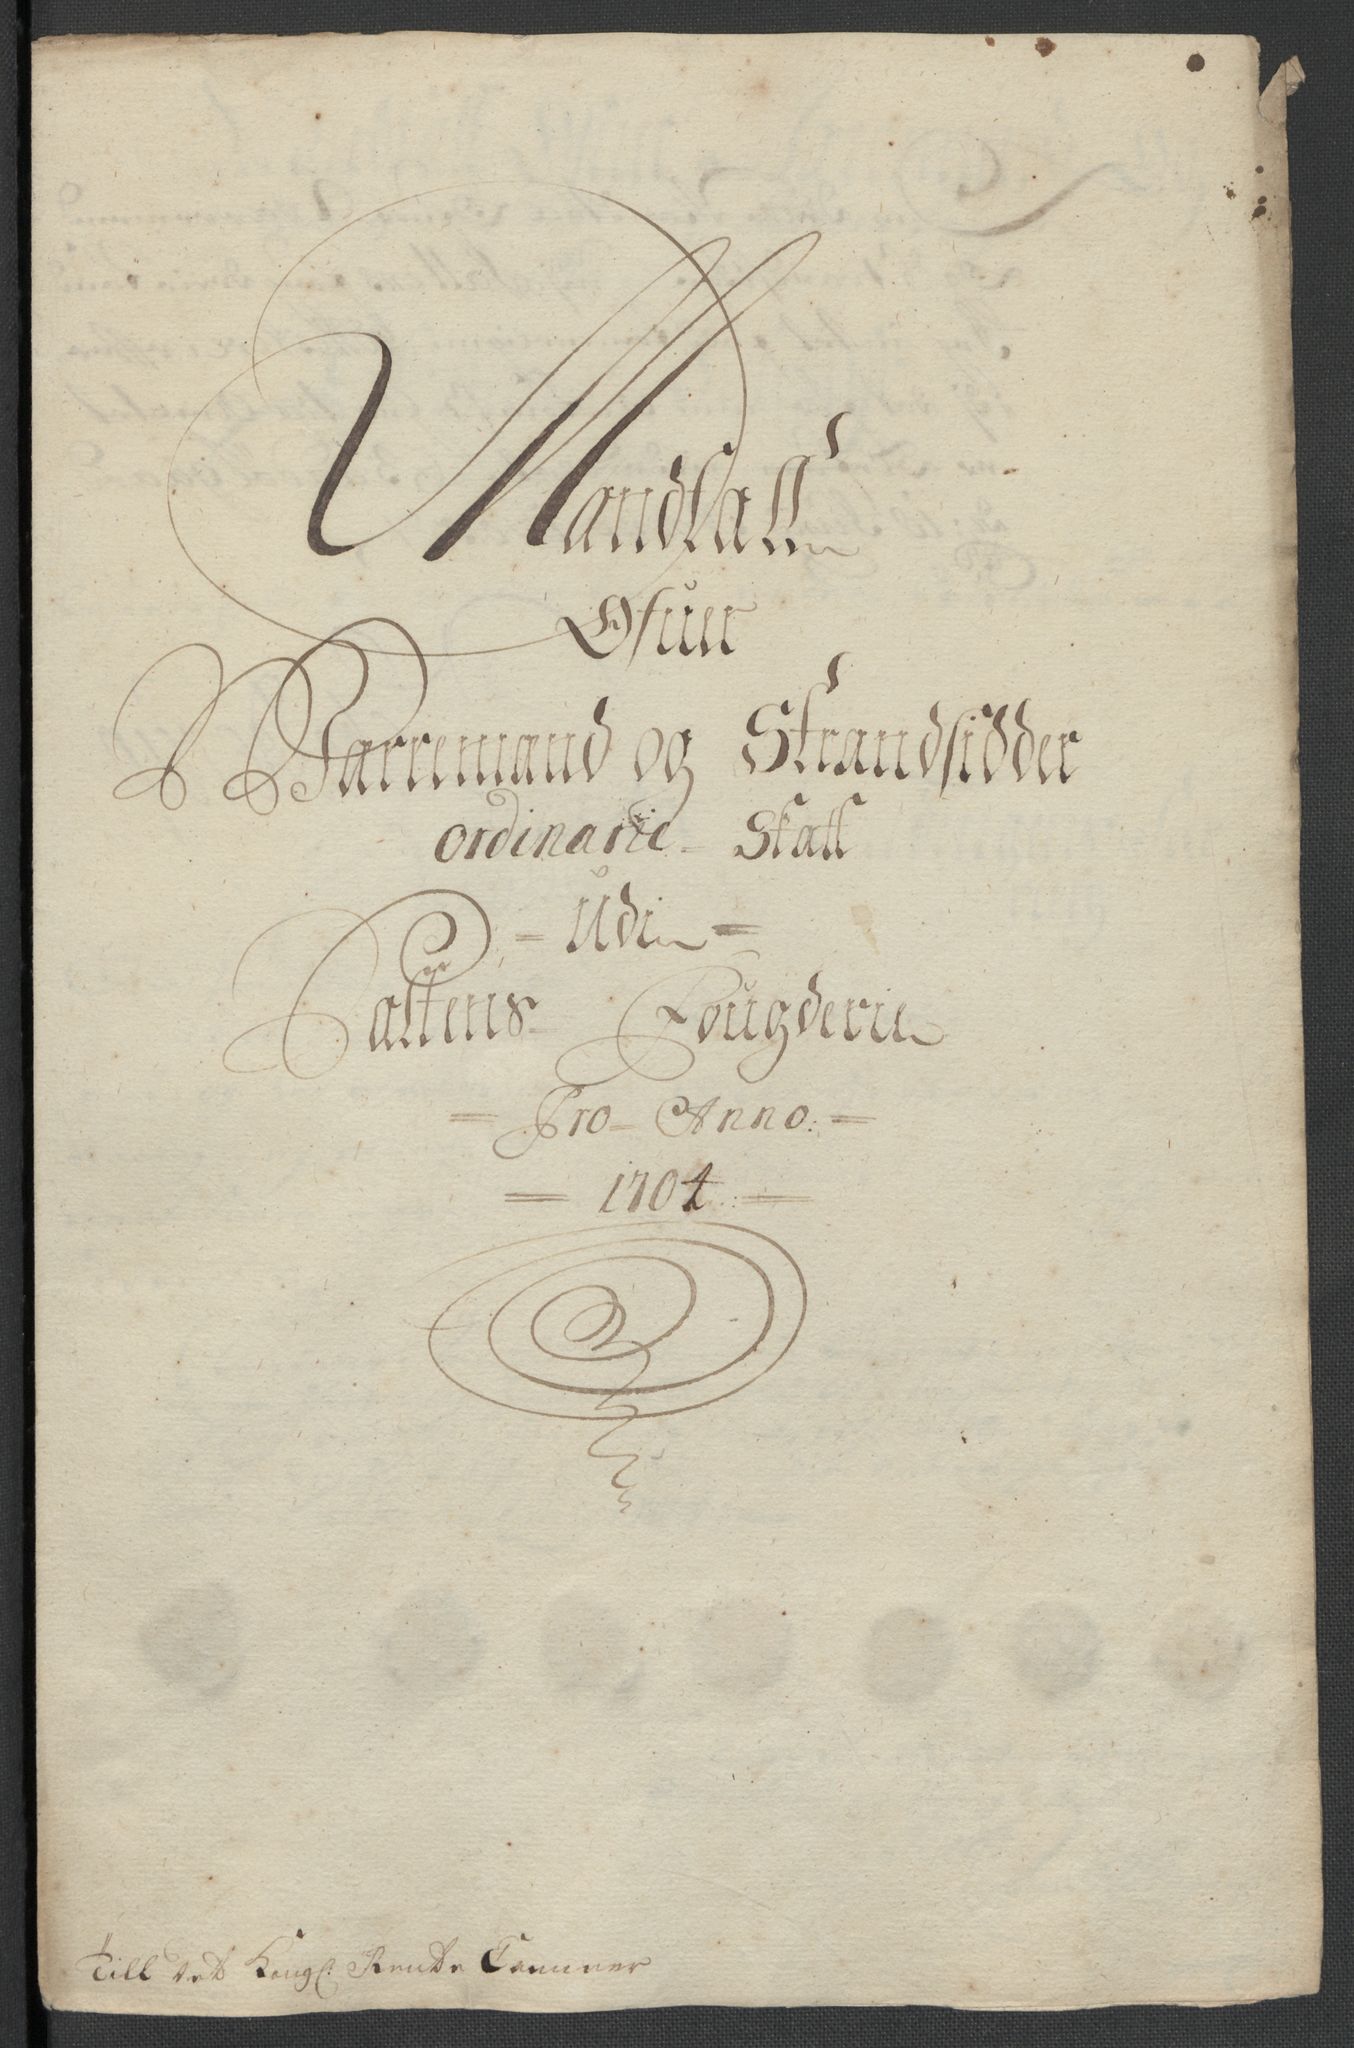 Mandtall
Ofuer
Barremand og Strandsidder
ordinarie Skatt
= Udi =
Saltens Fougderie
= Pro Anno. =
= 1704 =
Till det Kongl: Rente Cammer